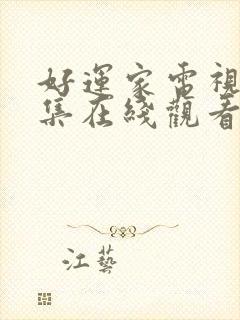 好運家電視
集在綫觀看
江藝